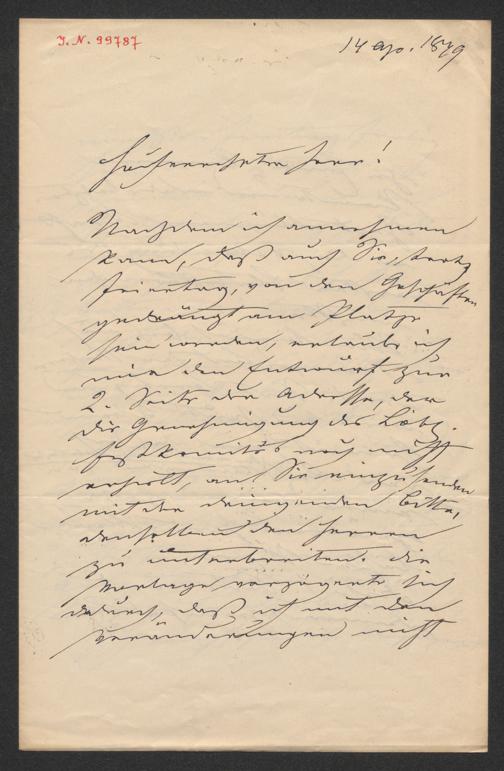 I. N. 99787
14 Apr. 1879
Hochverehrter Herr!
Nachdem ich annehmen
kann, daß auch Sie, trotz
Feiertag, von den Geschäften
gedrängt am Platze
sein werden, erlaube ich
mir den Entwurf zur
2. Seite der Adresse, der
die Genehmigung des löbl.
Festkomité's noch nicht
erhielt, an Sie einzusenden
mit der dringenden Bitte,
denselben den Herren
zu unterbreiten. Die
Vorlage verzögerte sich
dadurch, daß ich mit den
Veränderungen nicht